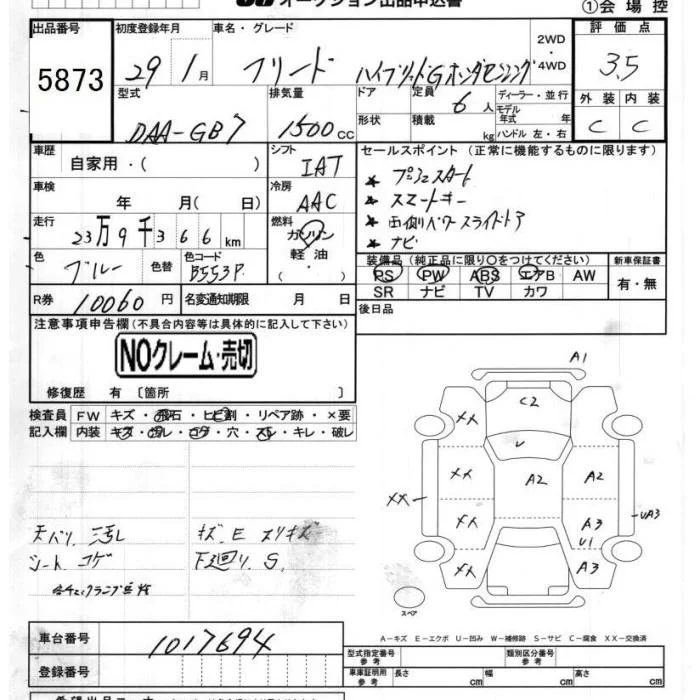 オークション出品申込書
①会場控
出品番号 初度登録年月 車名・グレード 評価点
5873 29 1月 フリード ハイブリッドGホンダセンシング 2WD・4WD 3.5
型式 排気量 ドア 定員 6人 ディーラー・並行 外装 内装
DAA-GB7 1500cc 形状 積載 kg モデル年式 年 ハンドル 左・右 C C
車歴 自家用・( ) シフト IAT セールスポイント (正常に機能するものに限ります)
車検 年 月( 日) 冷房 AAC ★ プッシュスタート
★ スマートキー
走行 23万9千366km 燃料 ガソリン 軽油 ・( ) ★ 両側パワースライドドア
★ ナビ
色 ブルー 色替 色コード B553P 装備品 (純正品に限り○をつけてください) 新車保証書
PS PW ABS エアB AW 有・無
R券 10060円 名変通知期限 月 日 SR ナビ TV カワ
注意事項申告欄 (不具合内容等は具体的に記入して下さい) 後日品
NOクレーム・売切
修復歴 有 〔箇所 〕
検査員 FW キズ・飛石・ヒビ割・リペア跡・×要
記入欄 内装 キズ・汚レ・コゲ・穴・スレ・キレ・破レ
A1
XX C2
U
XX A2 A2
XX UA3
XX A3
U1
XX A3
スペア
天バリ、汚レ キズ、E スリキズ
シート、コゲ 下廻り S.
A-キズ E-エクボ U-凹み W-補修跡 S-サビ C-腐食 XX-交換済
車台番号 1017694
型式指定番号 参考 類別区分番号 参考
登録番号 車庫証明用 参考 長さ cm 幅 cm 高さ cm